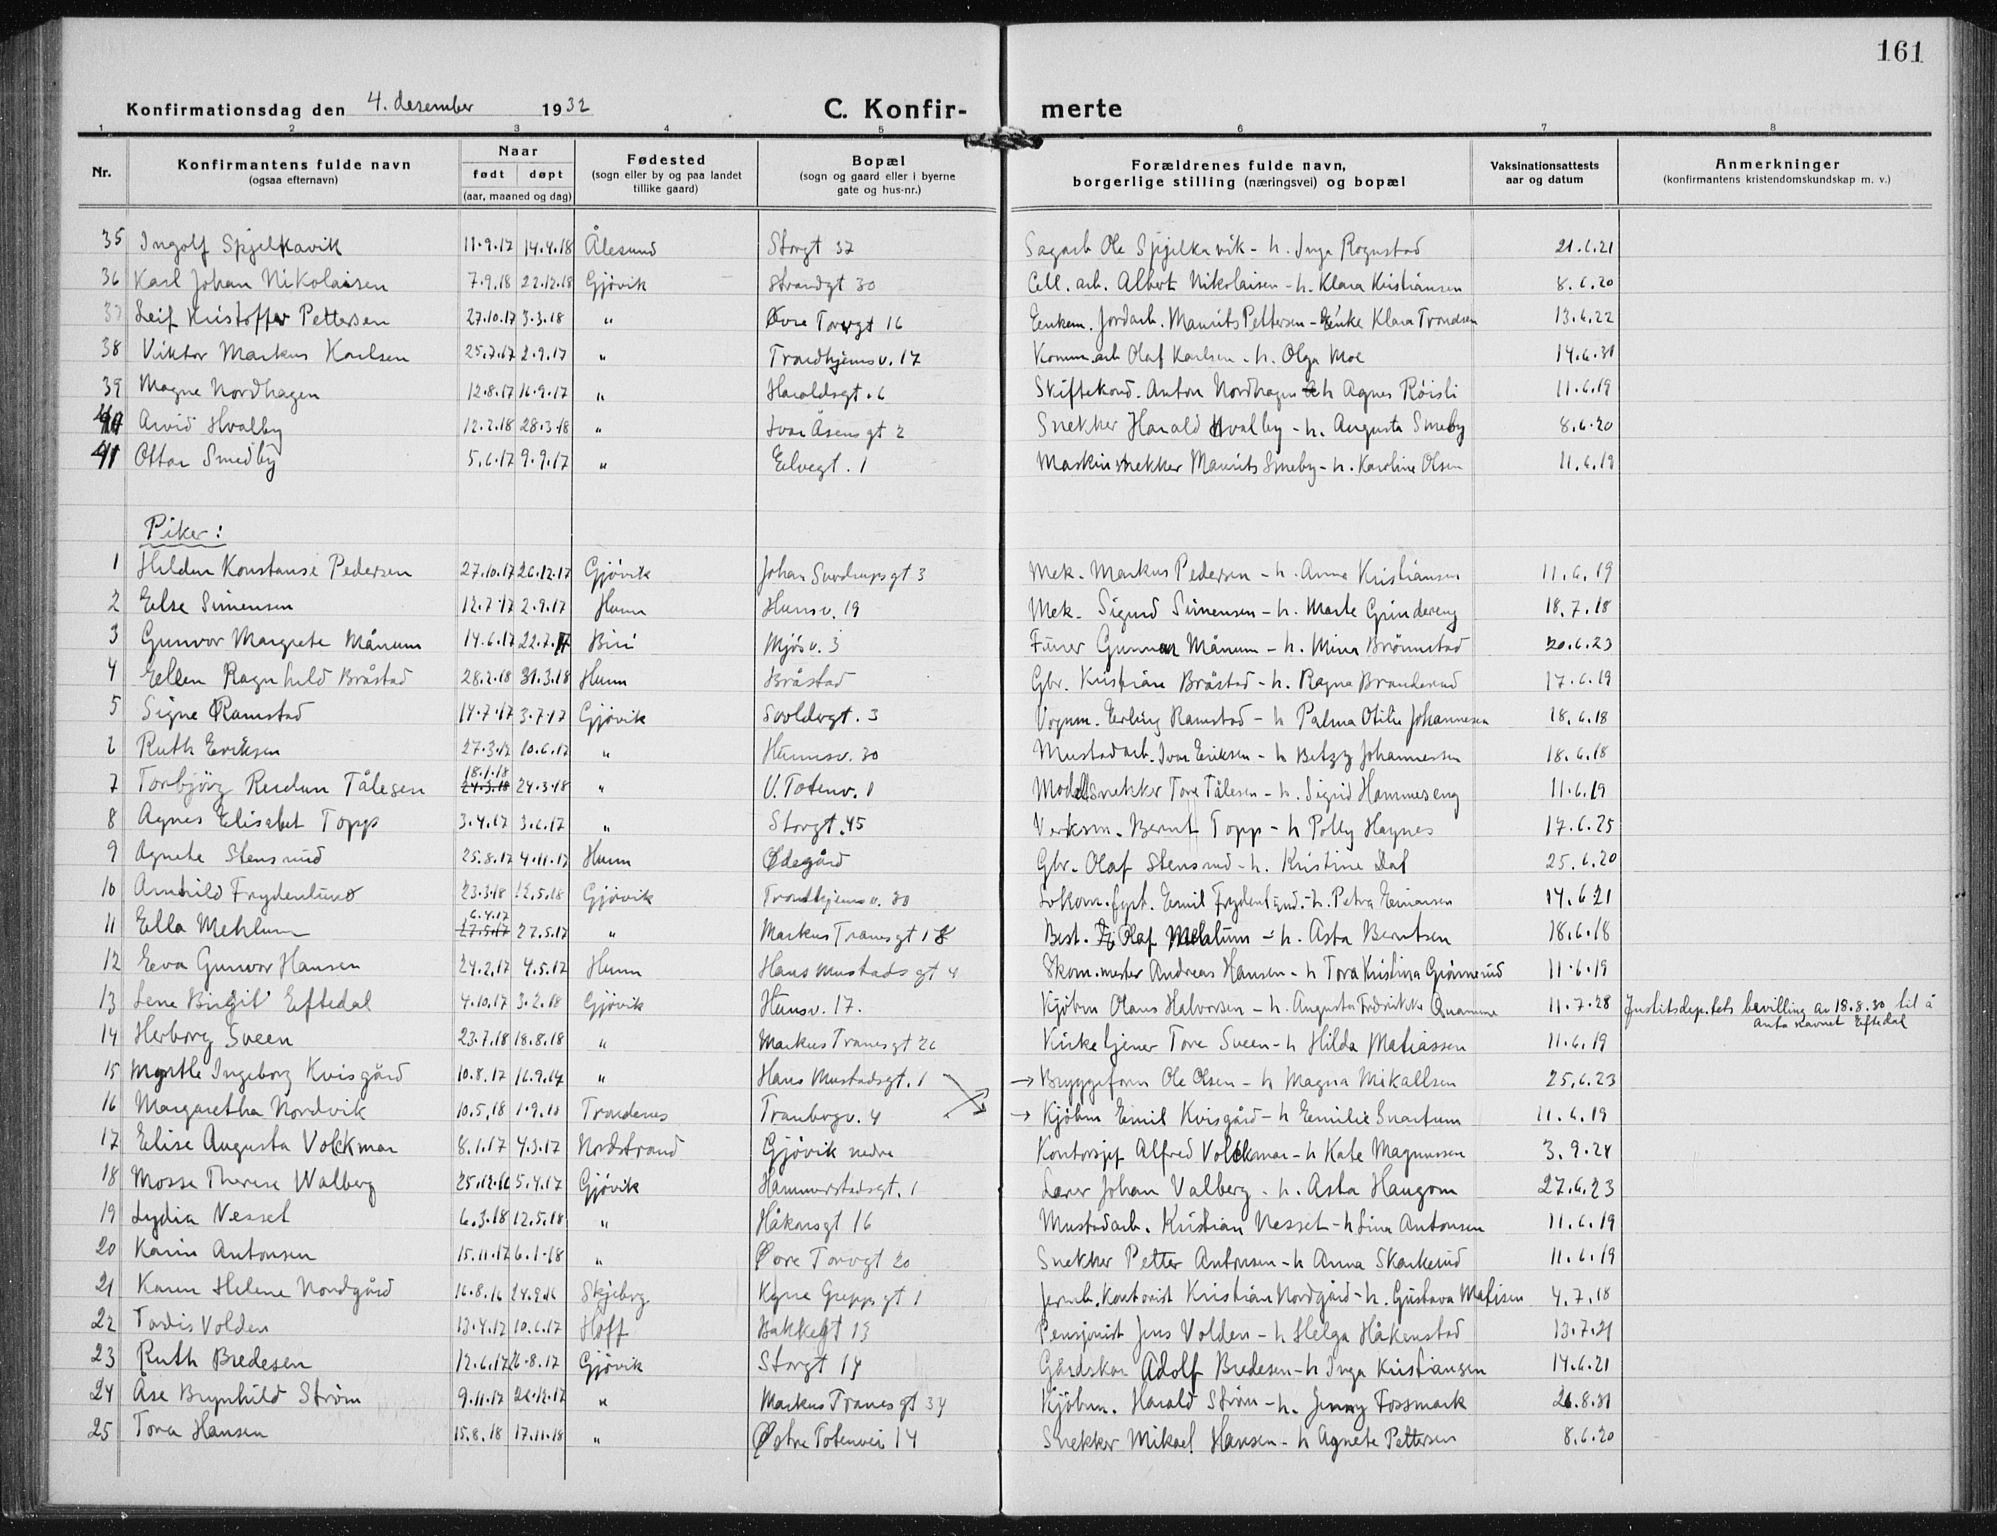 161
Konfirmationsdag den 4. desember 1932 C. Konfir- merte
1 2 3 4 5 6 7 8
Nr. Konfirmantens fulde navn (ogsaa efternavn) Naar født døpt (aar, maaned og dag) Fødested (sogn eller by og paa landet tillike gaard) Bopæl (sogn og gaard eller i byerne gate og hus-nr.) Forældrenes fulde navn, borgerlige stilling (næringsvei) og bopæl Vaksinationsattests aar og datum Anmerkninger (konfirmantens kristendomskundskap m. v.)
35 Ingolf Spjelkavik 11.9.17 14.4.18 Ålesund Storgt 37 Sagarb Ole Spjelkavik - h. Inga Rognstad 21.6.21
36 Karl Johan Nikolaisen 7.9.18 22.12.18 Gjövik Strandgt 30 Cell. arb. Albert Nikolaisen - h. Klara Kristiansen 8.6.20
37 Leif Kristoffer Pettersen 27.10.17 3.3.18 " Øvre Torvgt 16 Enkem. Jordarb. Maurits Pettersen - Enke Klara Trondsen 13.6.22
38 Viktor Markus Karlsen 25.7.17 2.9.17 " Trondhjemsv. 17 Komm.arb Olaf Karlsen - h. Olga Moe 14.6.21
39 Magne Nordhagen 12.8.17 16.9.17 " Haraldsgt. 6 Skiftekond. Anton Nordhagen h Agnes Röisli 11.6.19
40 Arvid Hvalby 12.2.18 28.3.18 " Ivar Åsens gt 2 Snekker Harald Hvalby - h. Augusta Smeby 8.6.20
41 Ottar Smedby 5.6.17 9.9.17 " Elvegt. 1 Maskinsnekker Maurits Smeby - h. Karoline Olsen 11.6.19
Piker:
1 Hildur Konstanse Pedersen 27.10.17 26.12.17 Gjövik Johan Sverdrups gt 3 Mek. Markus Pedersen - h. Anna Kristiansen 11.6.19
2 Else Simensen 12.7.17 2.9.17 Hunn Hunsv. 19 Mek. Sigurd Simensen - h. Marte Grindereng 18.7.18
3 Gunvor Margrete Månum 14.6.17 22.7.17 Biri Mjös v. 3 Furer Gunnar Månum - h. Mina Brönnstad 20.6.23
4 Ellen Ragnhild Bråstad 28.2.18 31.3.18 Hunn Bråstad Gbr. Kristian Bråstad - h. Ragna Branderud 17.6.19
5 Signe Ramstad 14.7.17 3.7.17 Gjövik Svoldergt. 3 Vognm. Erling Ramstad - h Palma Otilie Johannesen 18.6.18
6 Ruth Eriksen 27.3.17 10.6.17 " Hunnsv. 30 Mustadarb. Ivar Eriksen - h Betzy Johannessen 18.6.18
7 Torbjörg Reidun Tålesen 18.1.18 24.3.18 24.3.18 " V. Totenv. 1 Modellsnekker Tore Tålesen - h. Sigrid Hammeseng 11.6.19
8 Agnes Elisabet Topp 3.4.17 3.6.17 " Storgt. 45 Verksm. Bernt Topp - h Polly Haynes 17.6.25
9 Agnete Stensrud 25.8.17 4.11.17 Hunn Ødegård Gbr. Olaf Stensrud - h. Kristine Dal 25.6.20
10 Arnhild Frydenlund 23.3.18 12.5.18 Gjövik Trondhjems v. 30 Lokom.fyrb. Emil Frydenlund - h. Petra Einarsen 14.6.21
11 Ella Mehlum 6.4.17 27.5.17 27.5.17 " Markus Tranes gt 18 Best. Olaf Mehlum - h. Asta Berntsen 18.6.18
12 Eva Gunvor Hansen 24.2.17 4.5.17 Hunn Hans Mustads gt 4 Skom.mester Andreas Hansen - h Tora Kristina Grönnerud 11.6.19
13 Lena Birgit Eftedal 4.10.17 3.2.18 Gjövik Hunsv. 17. Kjöbm Olaus Halvorsen - h. Augusta Fredrikke Quamme 11.7.28 Justitsdep.tets bevilling av 18.8.30 til å
anta navnet Eftedal
14 Herborg Sveen 23.7.18 18.8.18 " Markus Tranes gt 26 Kirketjener Tore Sveen - h Hilda Matiassen 11.6.19
15 Myrtle Ingeborg Kvisgård 10.8.17 16.9.14 " Hans Mustadsgt. 1 → Bryggeform Ole Olsen - h Magna Mikalsen 25.6.23
16 Margaretha Nordvik 10.5.18 1.9.18 Trondenes Tranbergv. 4 → Kjöbm Emil Kvisgård - h Emilie Svartum 11.6.19
17 Elise Augusta Volckmar 8.1.17 4.3.17 Nordstrand Gjövik nedre Kontorsjef Alfred Volckmar - h Kate Magnussen 3.9.24
18 Mosse Therese Walberg 25.12.16 5.4.17 Gjövik Hammerstadsgt. 1 Lærer Johan Valberg - h. Asta Haugom 27.6.23
19 Lydia Nesset 6.3.18 12.5.18 " Håkonsgt 16 Mustadarb. Kristian Nesset - h Lina Antonsen 11.6.19
20 Karin Antonsen 15.11.17 6.1.18 " Øvre Torvgt 20 Snekker Petter Antonsen - h Anna Skarkerud 11.6.19
21 Karen Helene Nordgård 16.8.16 24.9.16 Skjeberg Kyrre Grepps gt 1 Jernb. Kontorist Kristian Nordgård - h. Gustava Matisen 4.7.18
22 Tordis Volden 13.4.17 10.6.17 Hoff Bakkegt 13 Pensjonist Jens Volden - h Helga Håkenstad 13.7.21
23 Ruth Bredesen 12.6.17 26.8.17 Gjövik Storgt 14 Gårdskar Adolf Bredesen - h Inga Kristiansen 14.6.21
24 Åse Brynhild Ström 9.11.17 26.12.17 " Markus Tranes gt 34 Kjöbm. Harald Ström - h. Jenny Fossmark 26.8.31
25 Tora Hansen 15.8.18 17.11.18 " Østre Totenvei 14 Snekker Mikael Hansen - h Agnete Pettersen 8.6.20